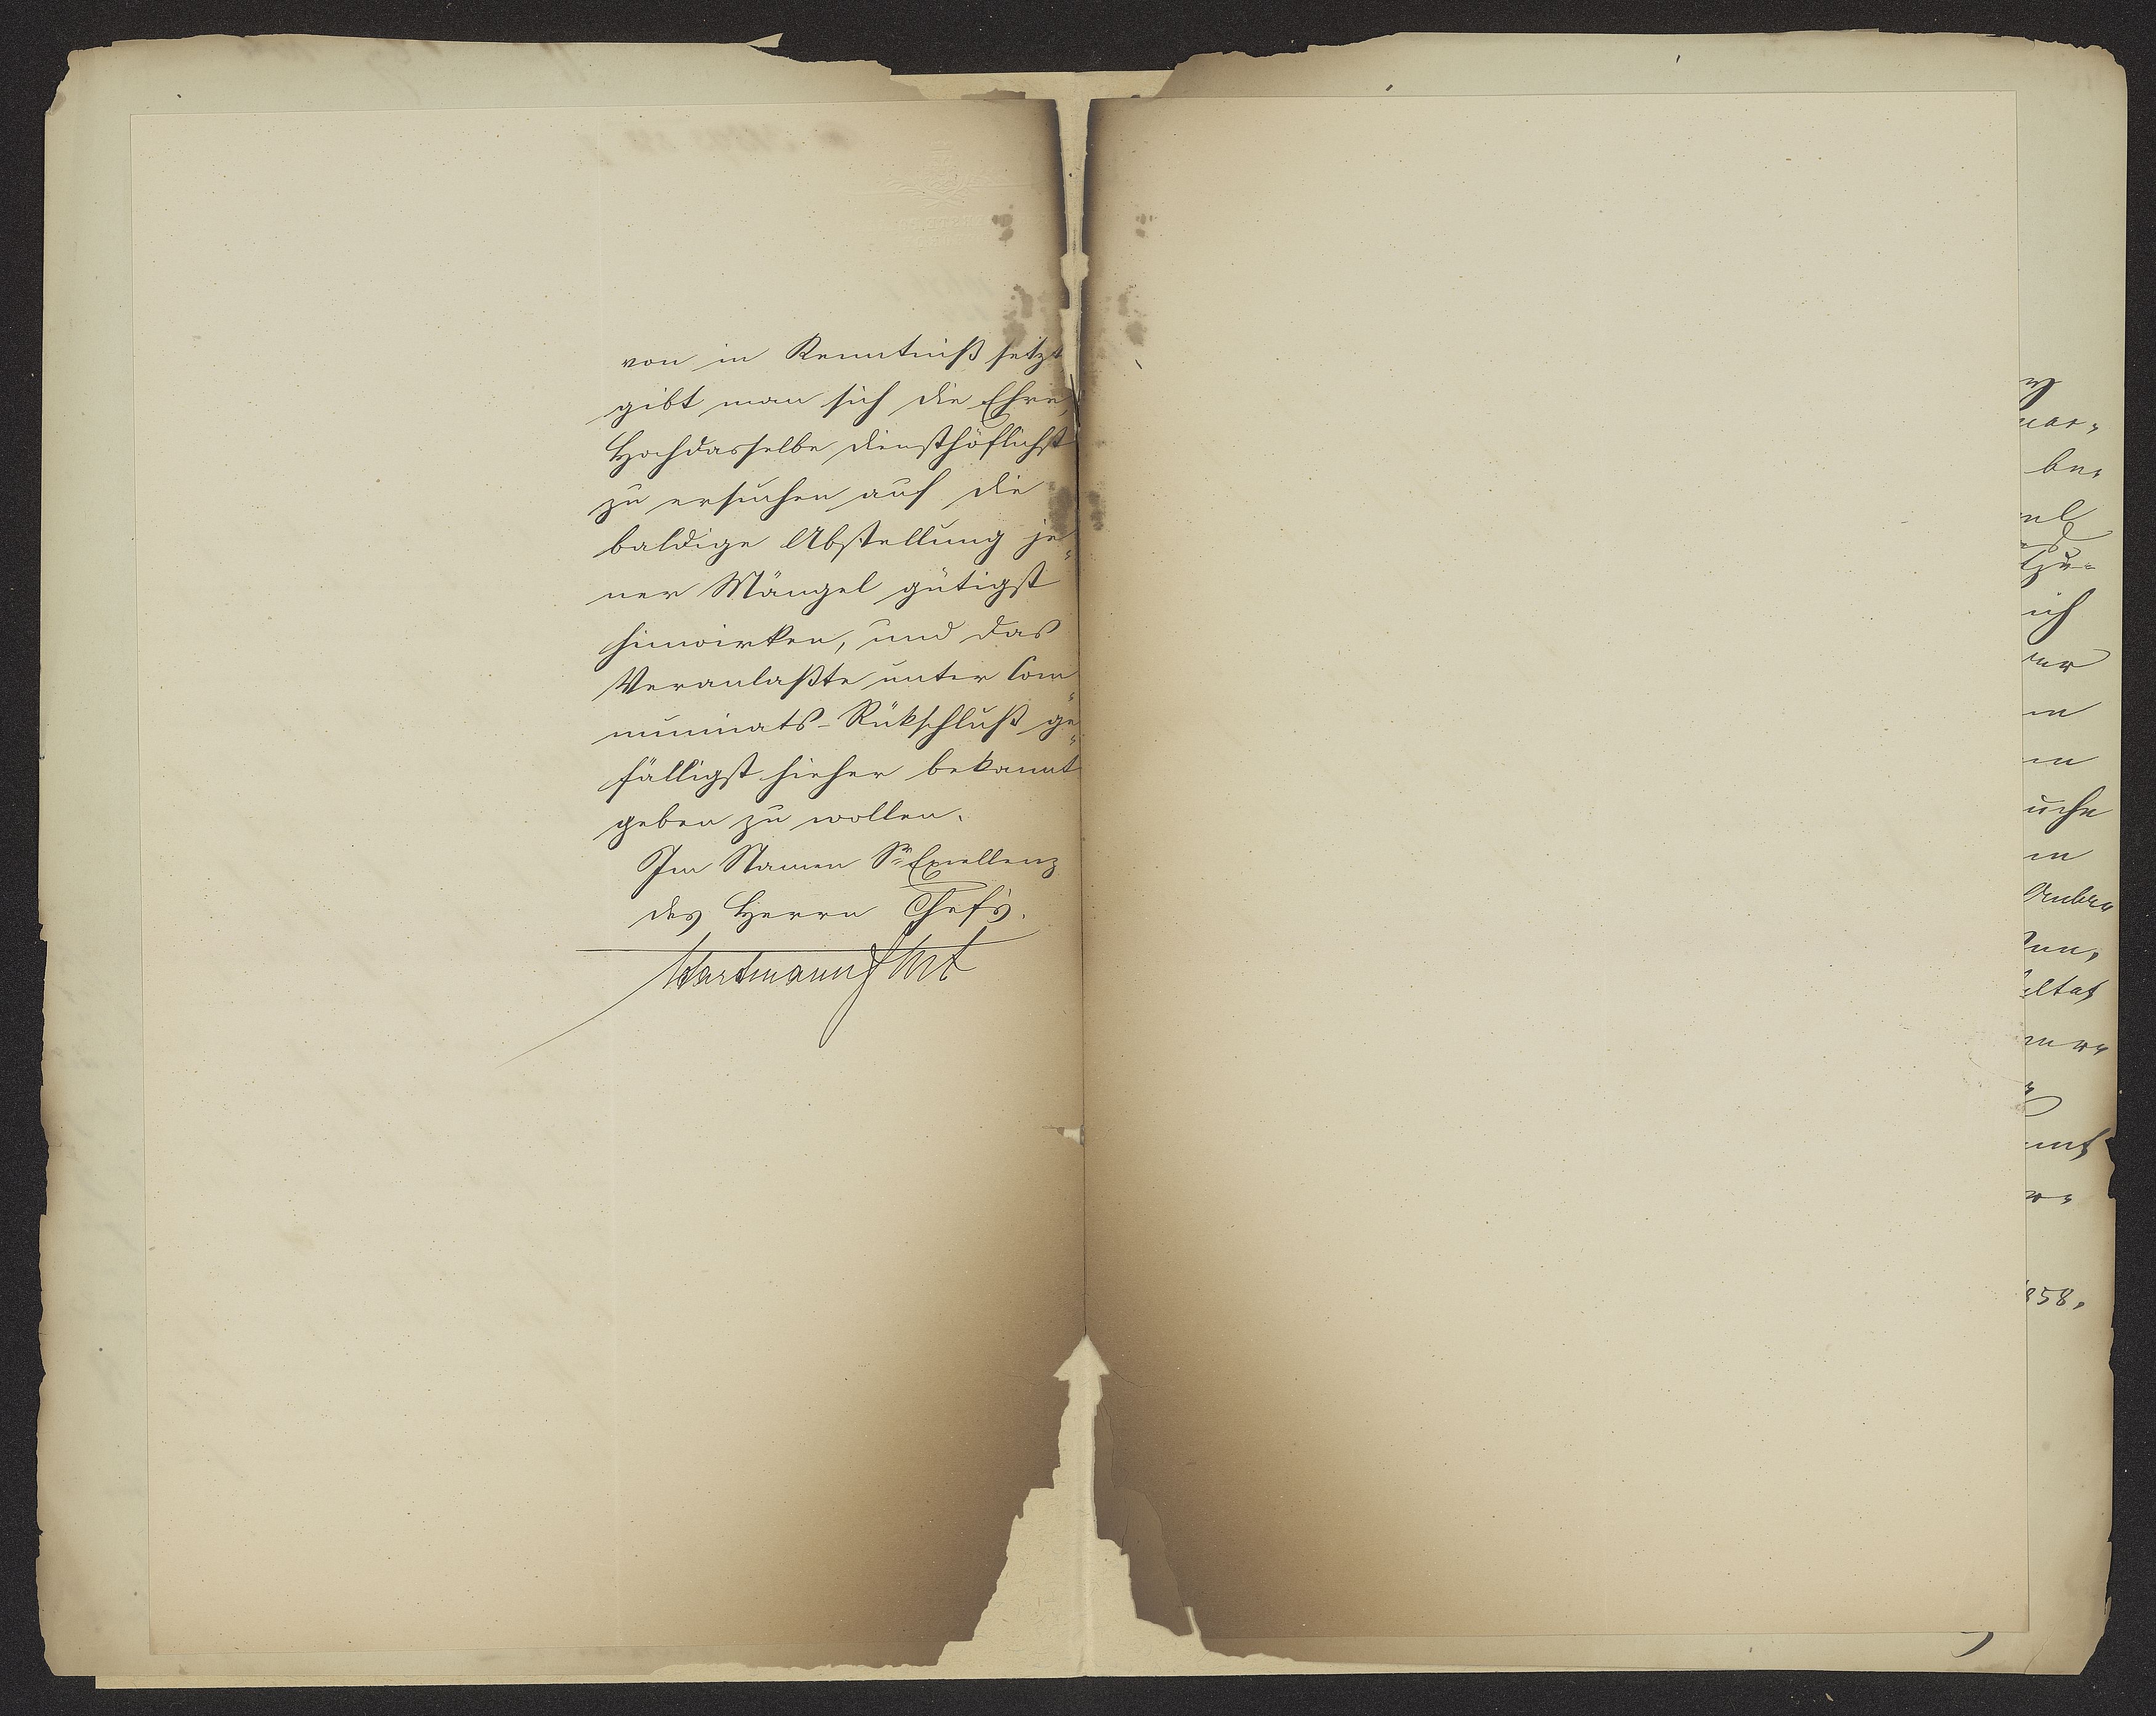 von in Kenntniß setzt
gibt man sich die Ehre,
Hochdasselbe diensthöflichst
zu ersuchen auf die
baldige Abstellung je„
ner Mängel gütigst
hinwirken, und das
Veranlaßte unter Com„
municats-Rükschluß ge„
fälligst hieher bekannt
geben zu wollen.
Im Namen Sr Excellenz
des Herrn Chefs.
Hartmann
mar„
be„
zu„
ich
uche
ultat
858.